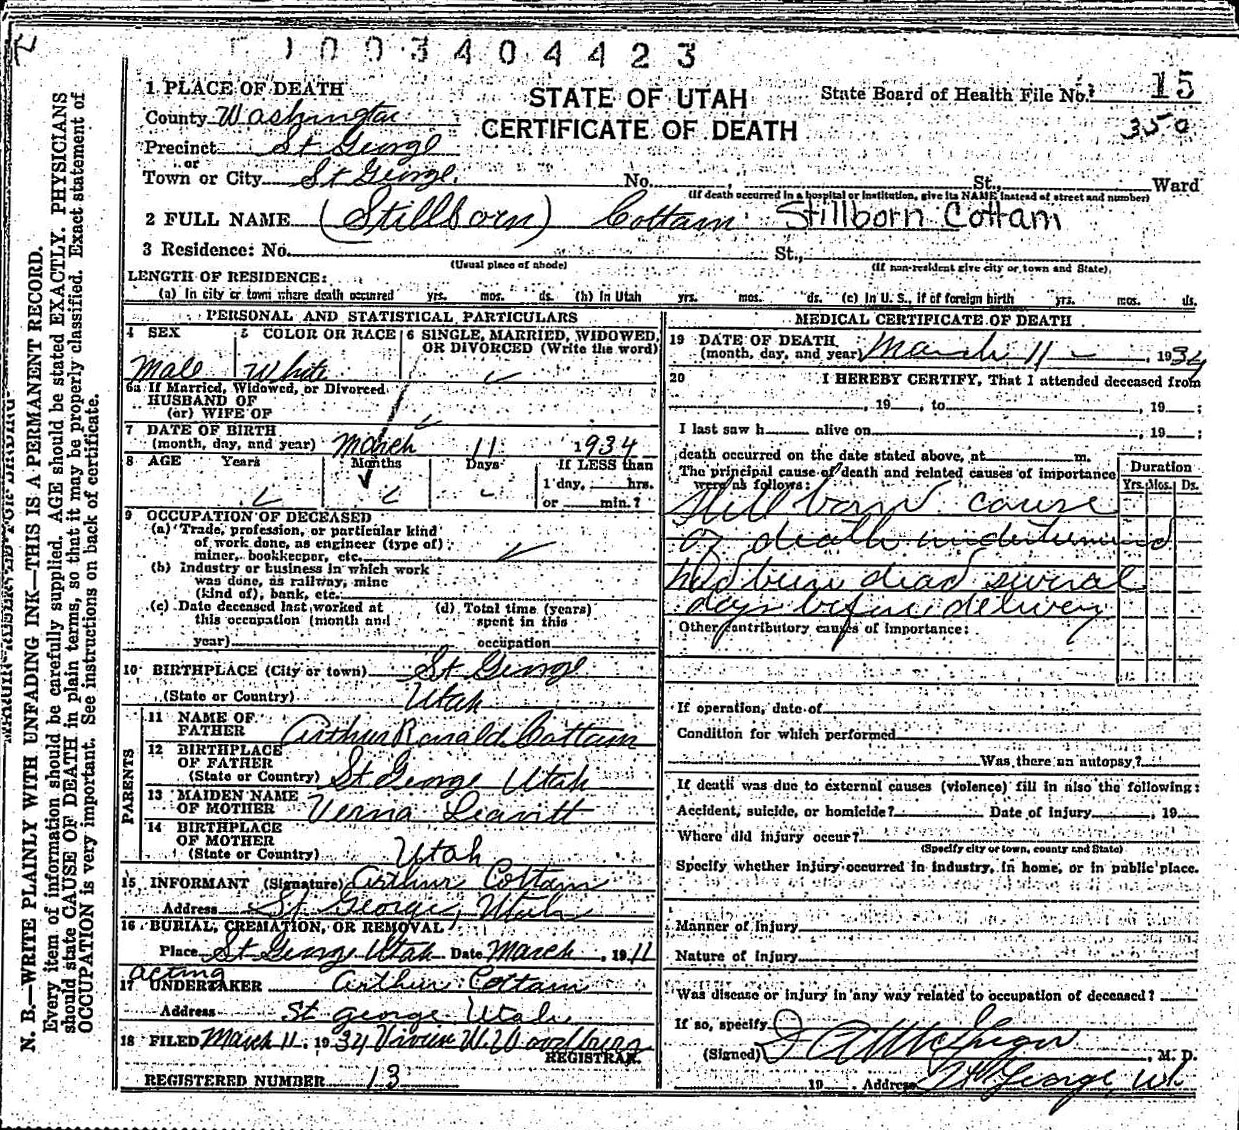 1003404423
1 PLACE OF DEATH
STATE OF UTAH
CERTIFICATE OF DEATH
State Board of Health File No. 15
350
County Washington
Precinct St George
or
Town or City St George. No. , St., Ward
(If death occurred in a hospital or institution, give its NAME instead of street and number)
2 FULL NAME (Stillborn) Cottam Stillborn Cottam
3 Residence: No. St.,
(Usual place of abode) (If non-resident give city or town and State)
LENGTH OF RESIDENCE:
(a) In city or town where death occurred yrs. mos. ds. (b) In Utah yrs. mos. ds. (c) In U. S., if of foreign birth yrs. mos. ds.
PERSONAL AND STATISTICAL PARTICULARS
4 SEX
Male
5 COLOR OR RACE
White
6 SINGLE, MARRIED, WIDOWED, OR DIVORCED (Write the word)
6a If Married, Widowed, or Divorced
HUSBAND OF
(or) WIFE OF
7 DATE OF BIRTH
(month, day, and year) March 11 1934
8 AGE Years Months Days If LESS than
1 day, hrs.
or min.?
9 OCCUPATION OF DECEASED
(a) Trade, profession, or particular kind
of work done, as engineer (type of)
miner, bookkeeper, etc.
(b) Industry or business in which work
was done, as railway, mine
(kind of), bank, etc.
(c) Date deceased last worked at
this occupation (month and
year)
(d) Total time (years)
spent in this
occupation
10 BIRTHPLACE (City or town) St George
(State or Country) Utah
PARENTS
11 NAME OF
FATHER Arthur Ronald Cottam
12 BIRTHPLACE
OF FATHER
(State or Country) St George Utah
13 MAIDEN NAME
OF MOTHER Verna Leavitt
14 BIRTHPLACE
OF MOTHER
(State or Country) Utah
15 INFORMANT (Signature) Arthur Cottam
Address St George, Utah
16 BURIAL, CREMATION, OR REMOVAL
Place St George Utah Date March , 19 11
acting
17 UNDERTAKER Arthur Cottam
Address St George Utah
18 FILED March 11, 1934 Vivien W. Woodbury
REGISTRAR.
REGISTERED NUMBER 13
MEDICAL CERTIFICATE OF DEATH
19 DATE OF DEATH
(month, day, and year) March 11 - , 1934
20 I HEREBY CERTIFY, That I attended deceased from
, 19 , to , 19 ;
I last saw h alive on , 19 ;
death occurred on the date stated above, at m.
The principal cause of death and related causes of importance
were as follows:
Duration
Yrs. Mos. Ds.
Still born cause
of death undetermined
had been dead several
days before delivery
Other contributory causes of importance:
If operation, date of
Condition for which performed
Was there an autopsy?
If death was due to external causes (violence) fill in also the following:
Accident, suicide, or homicide? Date of injury , 19
Where did injury occur?
(Specify city or town, county and State)
Specify whether injury occurred in industry, in home, or in public place.
Manner of injury
Nature of injury
Was disease or injury in any way related to occupation of deceased?
If so, specify
(Signed) McGregor , M. D.
19 Address St George, Ut.
N. B.—WRITE PLAINLY WITH UNFADING INK—THIS IS A PERMANENT RECORD.
Every item of information should be carefully supplied. AGE should be stated EXACTLY. PHYSICIANS
should state CAUSE OF DEATH in plain terms, so that it may be properly classified. Exact statement of
OCCUPATION is very important. See instructions on back of certificate.